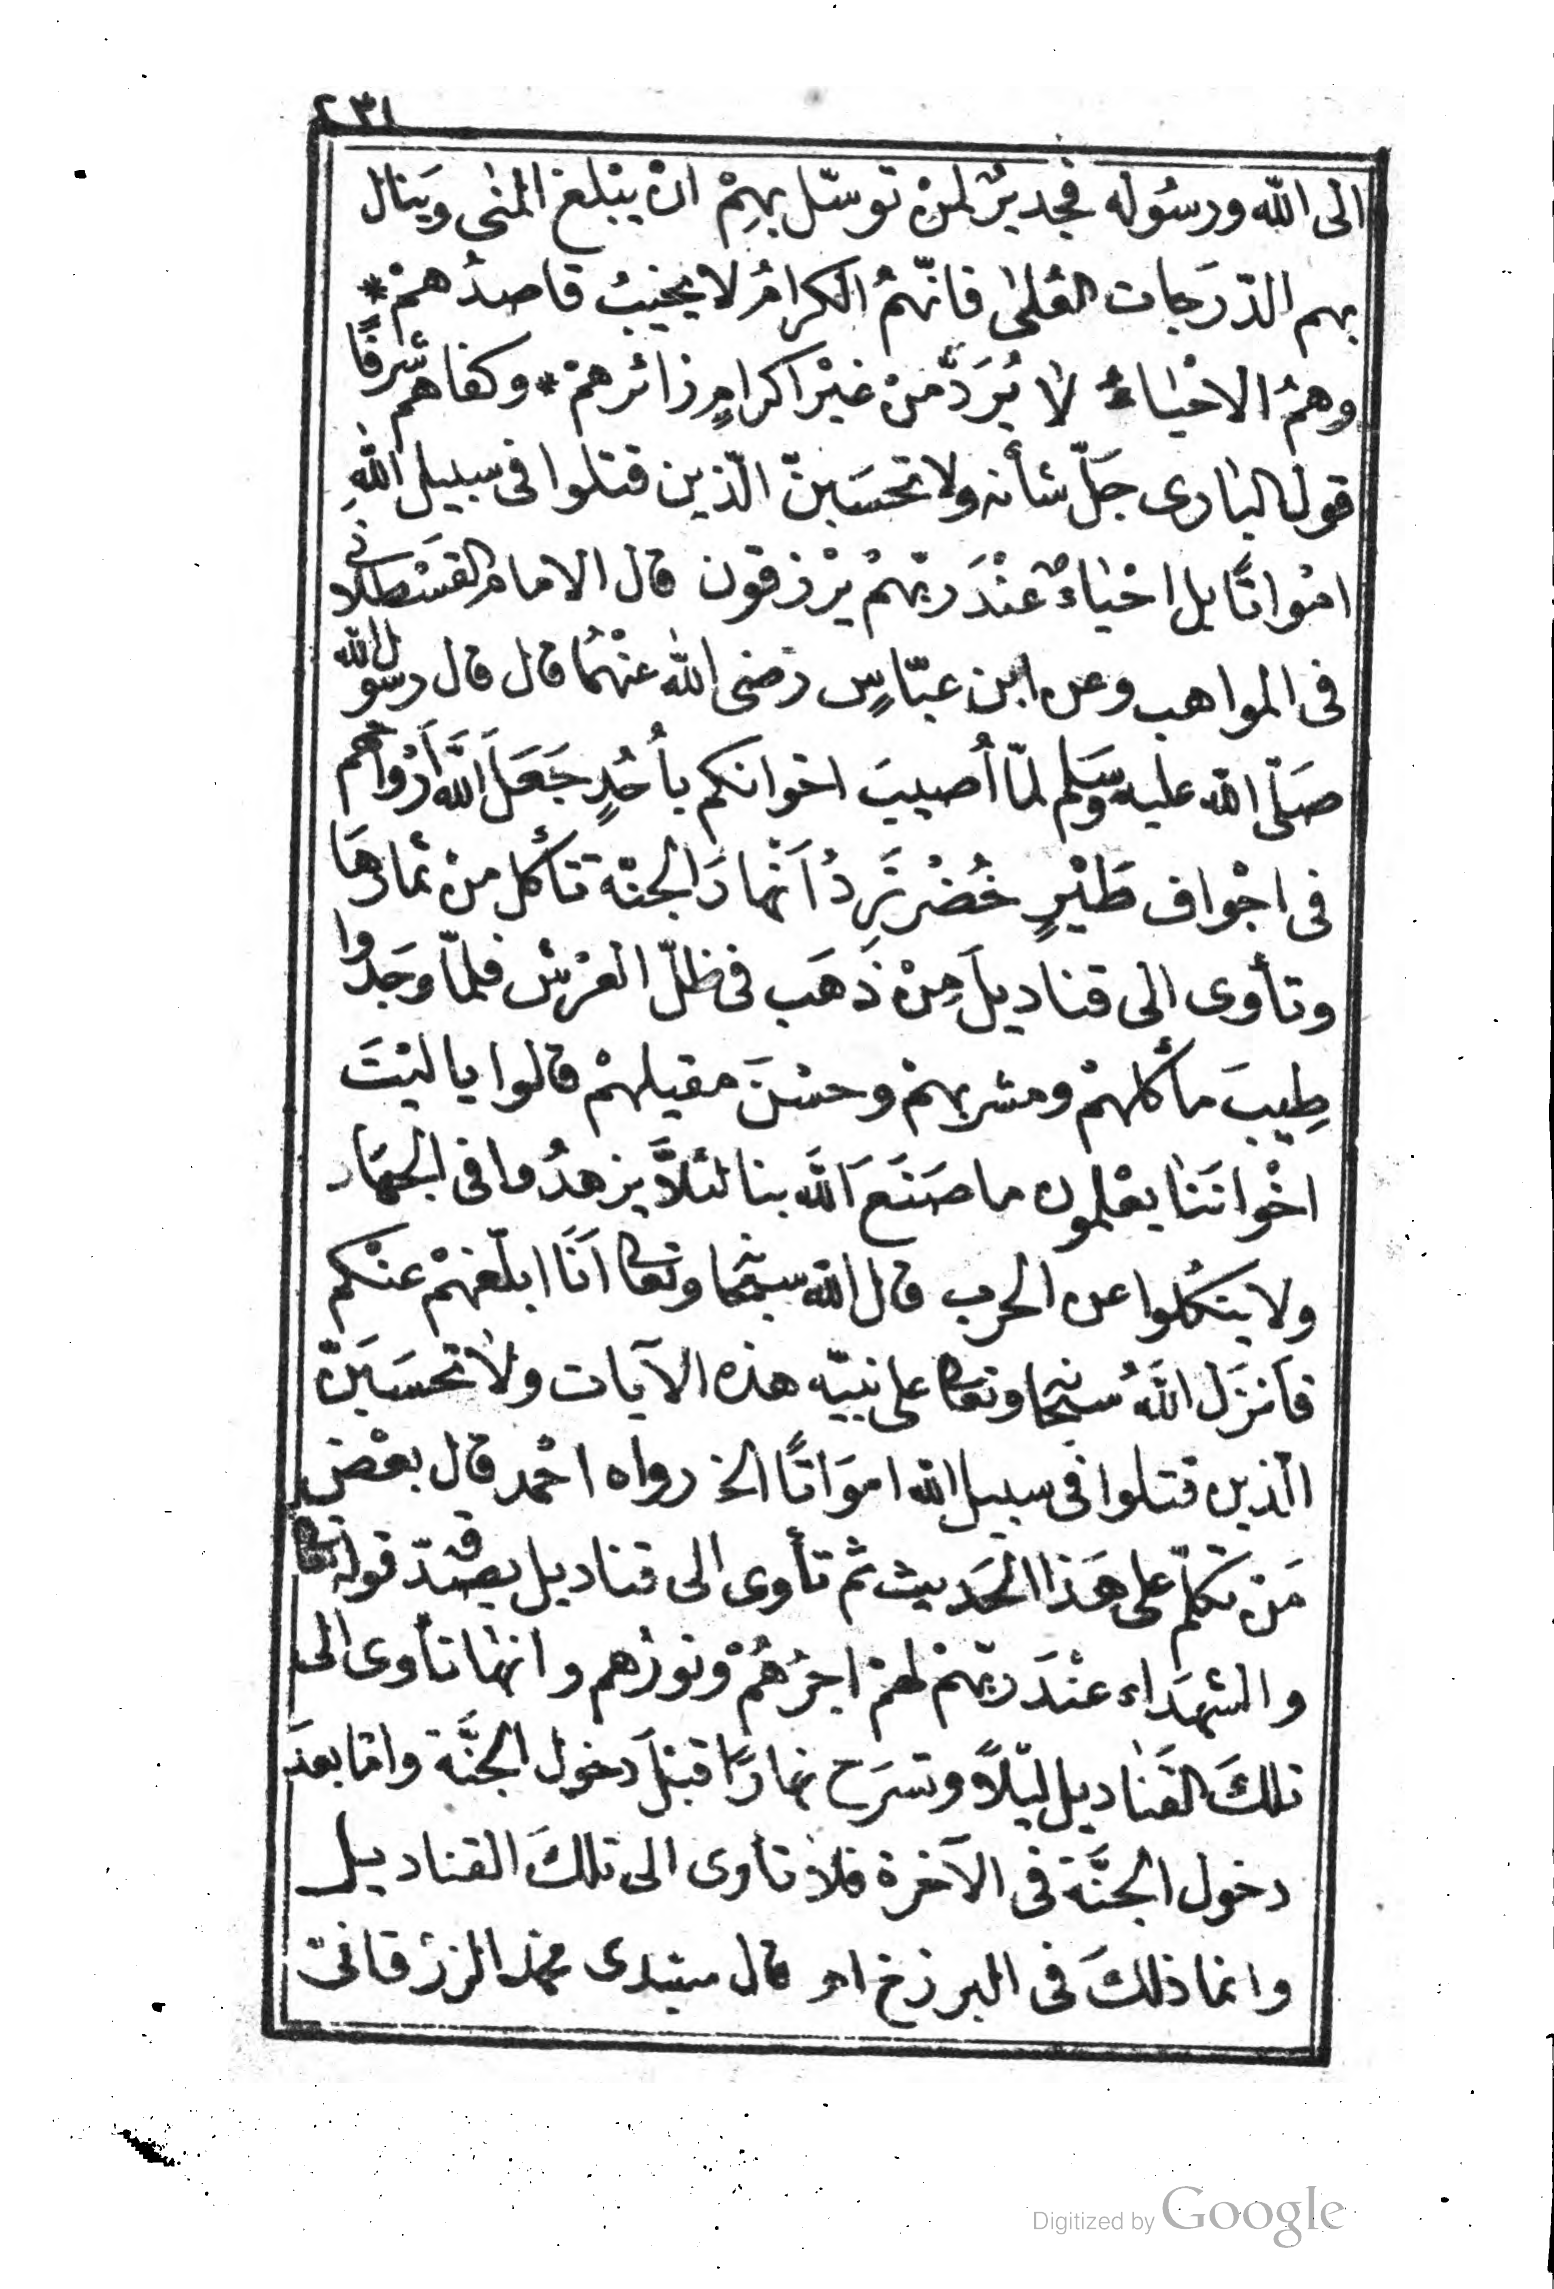 ٢٣١
الى الله ورسُوله فجديرٌ لمنْ توسّل بهِمْ انْ يبْلغ المنٰى وَينال
بهم الدّرَجات العُلىٰ فانّهمُ الكرامُ لا يخيبُ قاصدُهمْ *
وهمُ الاحْياءُ لا يُرَدّ منْ غيْر اكرامٍ زائرهمْ * وكفاهم شرفًا
قول البارى جَلّ شأنه ولا تحسَبنّ الّذين قتلوا فى سبيل اللهِ
امْواتًا بل احْياءٌ عنْدَ ربّهمْ يرْزقون قال الامام القسْطلانى
فى المواهب وعن ابن عبّاسٍ رَضى الله عنْهُما قال قال رسول الله
صَلّى الله عليه وسَلم لمّا أُصيبَ اخوانكم بأُحُدٍ جَعَلَ اللَّه أَرْوَاحَهم
فى اجْواف طَيْرٍ خُضْرٍ تَرِدُ اَنْهارَ الجنّة تتأكل منْ ثمارهَا
وتأوى الى قناديلَ مِنْ ذَهَب فى ظلّ العرْش فلمّا وجَدوا
طِيبَ مأكلهمْ ومشربهمْ وحسْنَ مقيلهمْ قالوا ياليْتَ
اخْوانَنا يعْلمون ما صَنَعَ اللَّه بنا لئلاَّ يزهدُوا فى الجهَاد
ولا ينكُلوا عن الحرب قال الله سبحٰنه وتعالى اَنَا ابلّغهمْ عنْكم
فاَنزَل اللَّهُ سبحٰنه وتعالى على نبيّه هذه الآيات ولا تحسَبَنّ
الّذين قتلوا فى سبيل الله امَوَاتًا الخ رواه احْمد قال بعْض
مَنْ تكلّم على هَذا الحَديث ثم تأوى الى قناديل يصْدّقه قوله تعالى
والشهَداء عنْدَ ربّهمْ لهمْ اجرُهُمْ ونورُهم وانها تأوى الى
تلكَ القَناديل ليْلاً وتسرَح نهارًا قبْلَ دخول الجنَّة وامّا بعدَ
دخول الجنَّة فى الآخرة فلا تأوى الى تلكَ القناديل
وانما ذلكَ فى البرزخ اه قال سيّدى محمّد الزرْقانى
Digitized by Google